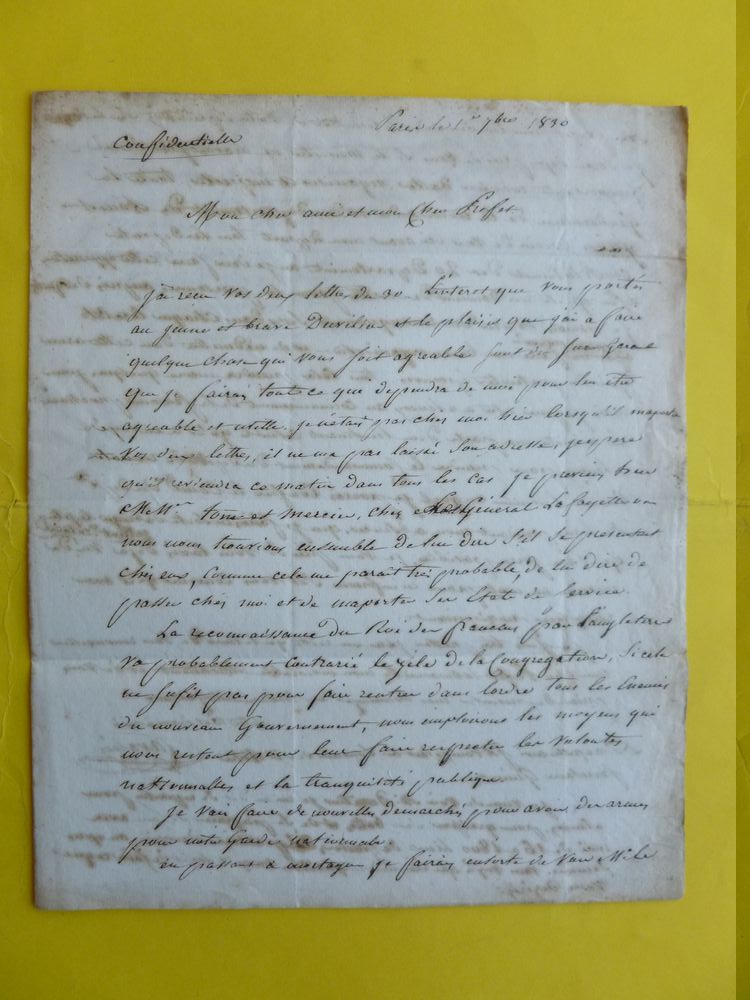 Paris le 1er 7bre 1830
Confidentielle
Mon cher ami et mon cher Préfet
j'ai recu vos deux lettres du 30. L'interet que vous portés
au jeune et brave et le plaisir que j'ai a faire
quelque chose qui vous soit agreable sont de sur garant
que je fairai tout ce qui dependra de moi pour lui etre
agreable et utille. je n'etais pas chez moi hier lorsqu'il m'aporta
vos deux lettres, il ne ma pas laissé son adresse, j'espere
qu'il reviendra ce matin dans tous les cas je previens
MM. et mercier, chez le Général La fayette ou
nous nous trouvions ensemble de lui dire s'il se presentait
chez eux, comme cela me parait tres probable, de lui dire de
passer chez moi et de m'aporter ses Etats de Service.
La reconnaissance du Roi des francais par l'angleterre
va probablement contrarié le zele de la Congregation, Si cela
ne sufit pas pour faire rentrer dans lordre tous les Enemis
du nouveau Gouvernement, nous emploirons les moyens qui
nous restent pour leur faire respecter les volontés
nationnalles et la tranquilité publique.
je vais faire de nouvelles demarches pour avoir des armes
pour notre Garde nationnale.
en passant a mortagne je fairai ensorte de